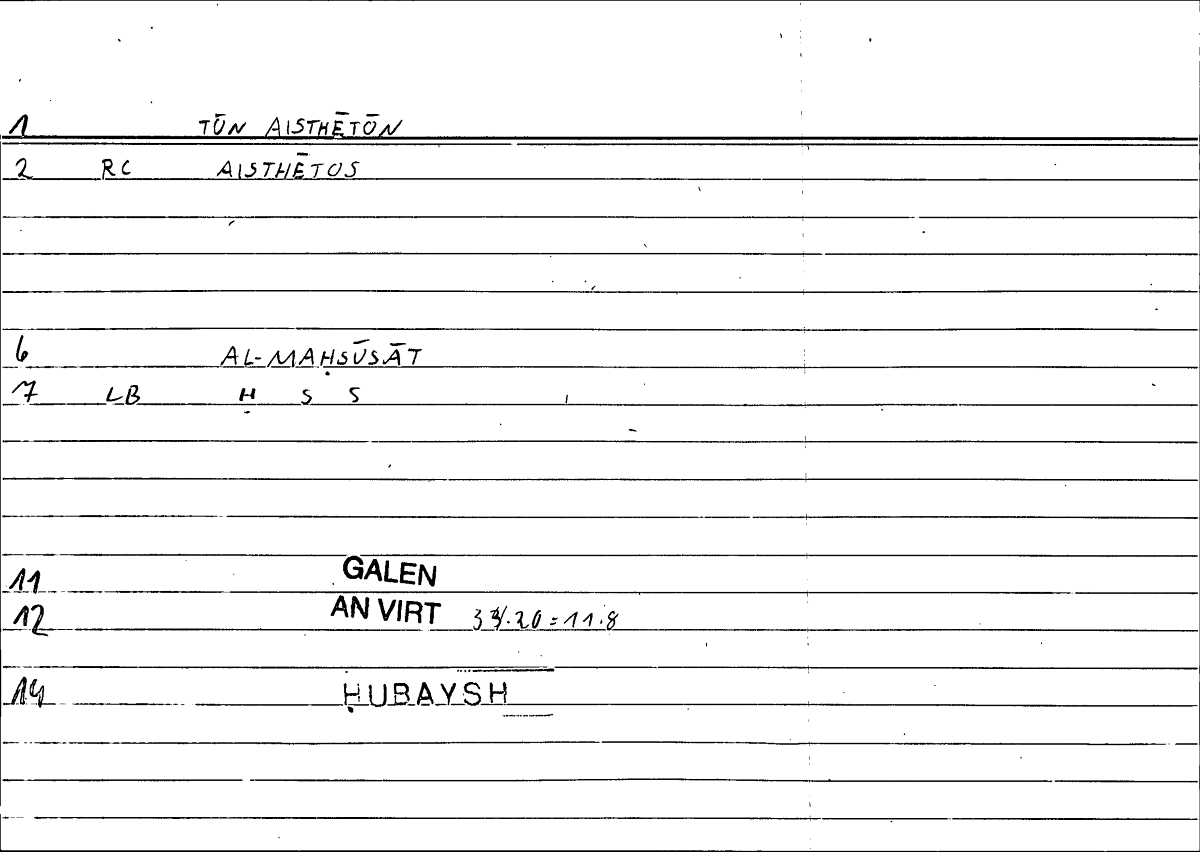 1 TŌN AISTHĒTŌN
2 RC AISTHĒTOS
6 AL-MAḤSŪSĀT
7 LB Ḥ S S
11 GALEN
12 AN VIRT 34.20=11.8
14 ḤUBAYSH